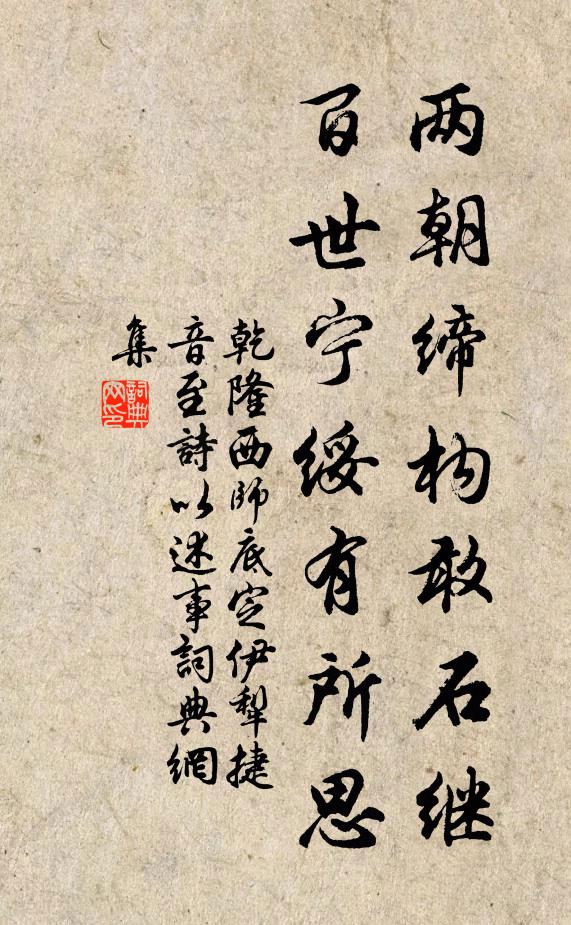 两朝缔构敢石继
百世宁绥有所思
乾隆西師底定伊犁捷
音至詩以述事詞典網
集
詞典网印